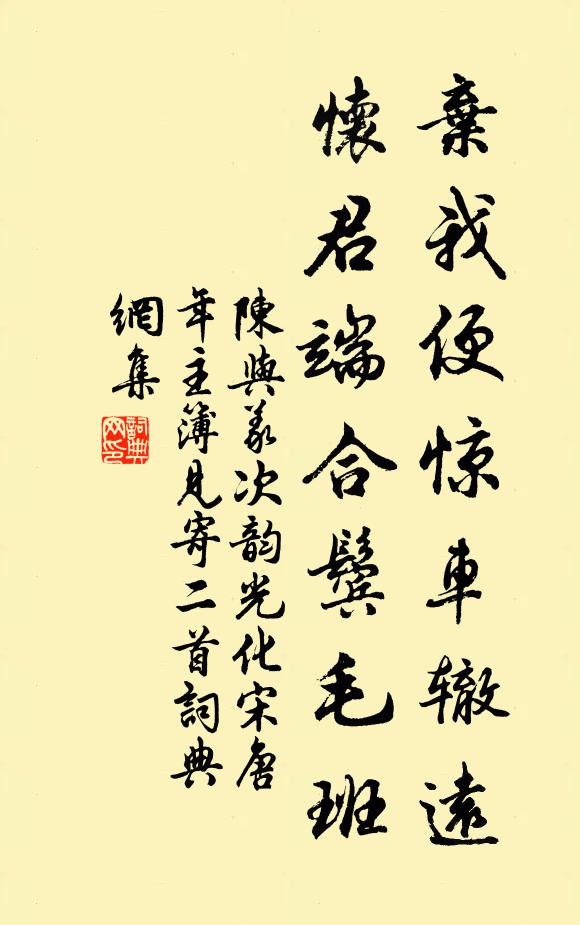 棄我便惊車辙遠
懷君端合鬢毛班
陳與義次韵光化宋唐
年主簿見寄二首詞典
網集
詞典
网印